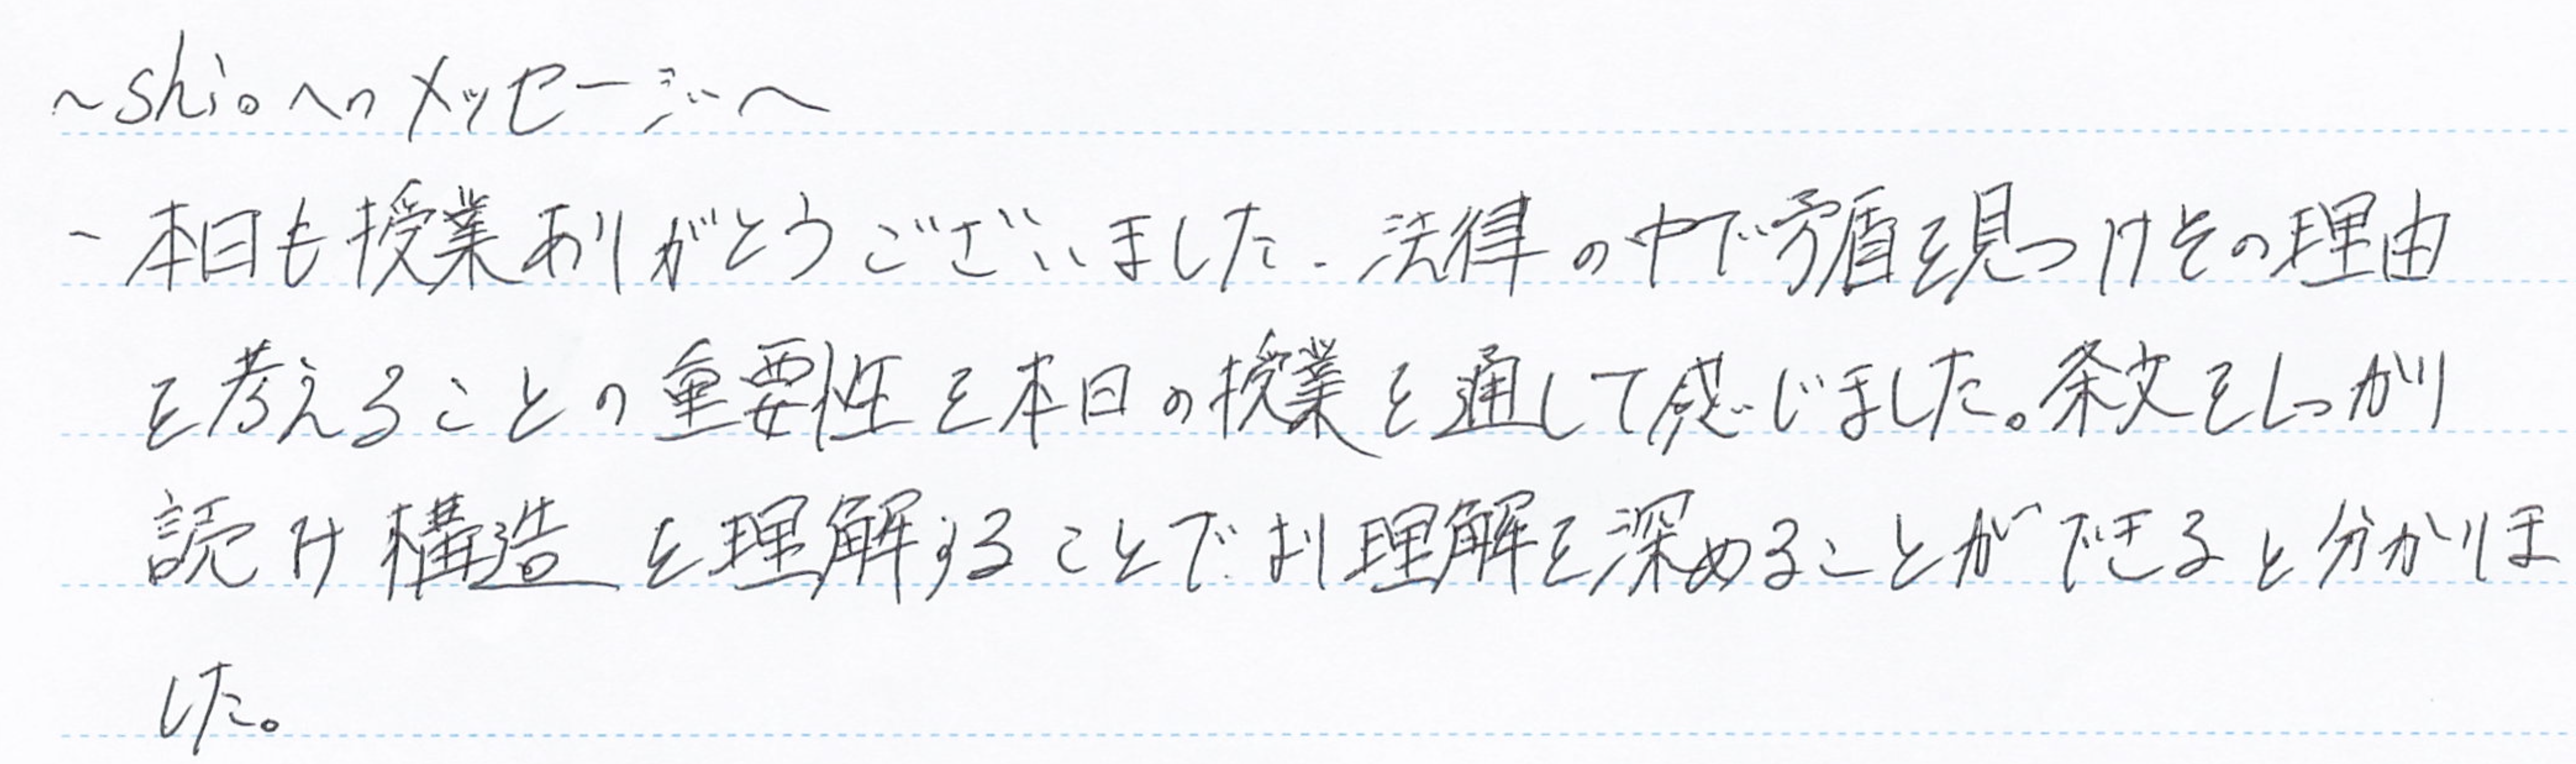 ～shioへのメッセージ～
- 本日も授業ありがとうございました. 法律の中で矛盾を見つけその理由
を考えることの重要性を本日の授業を通して感じました。条文をしっかり
読け構造を理解することでより理解を深めることができると分かりま
した。